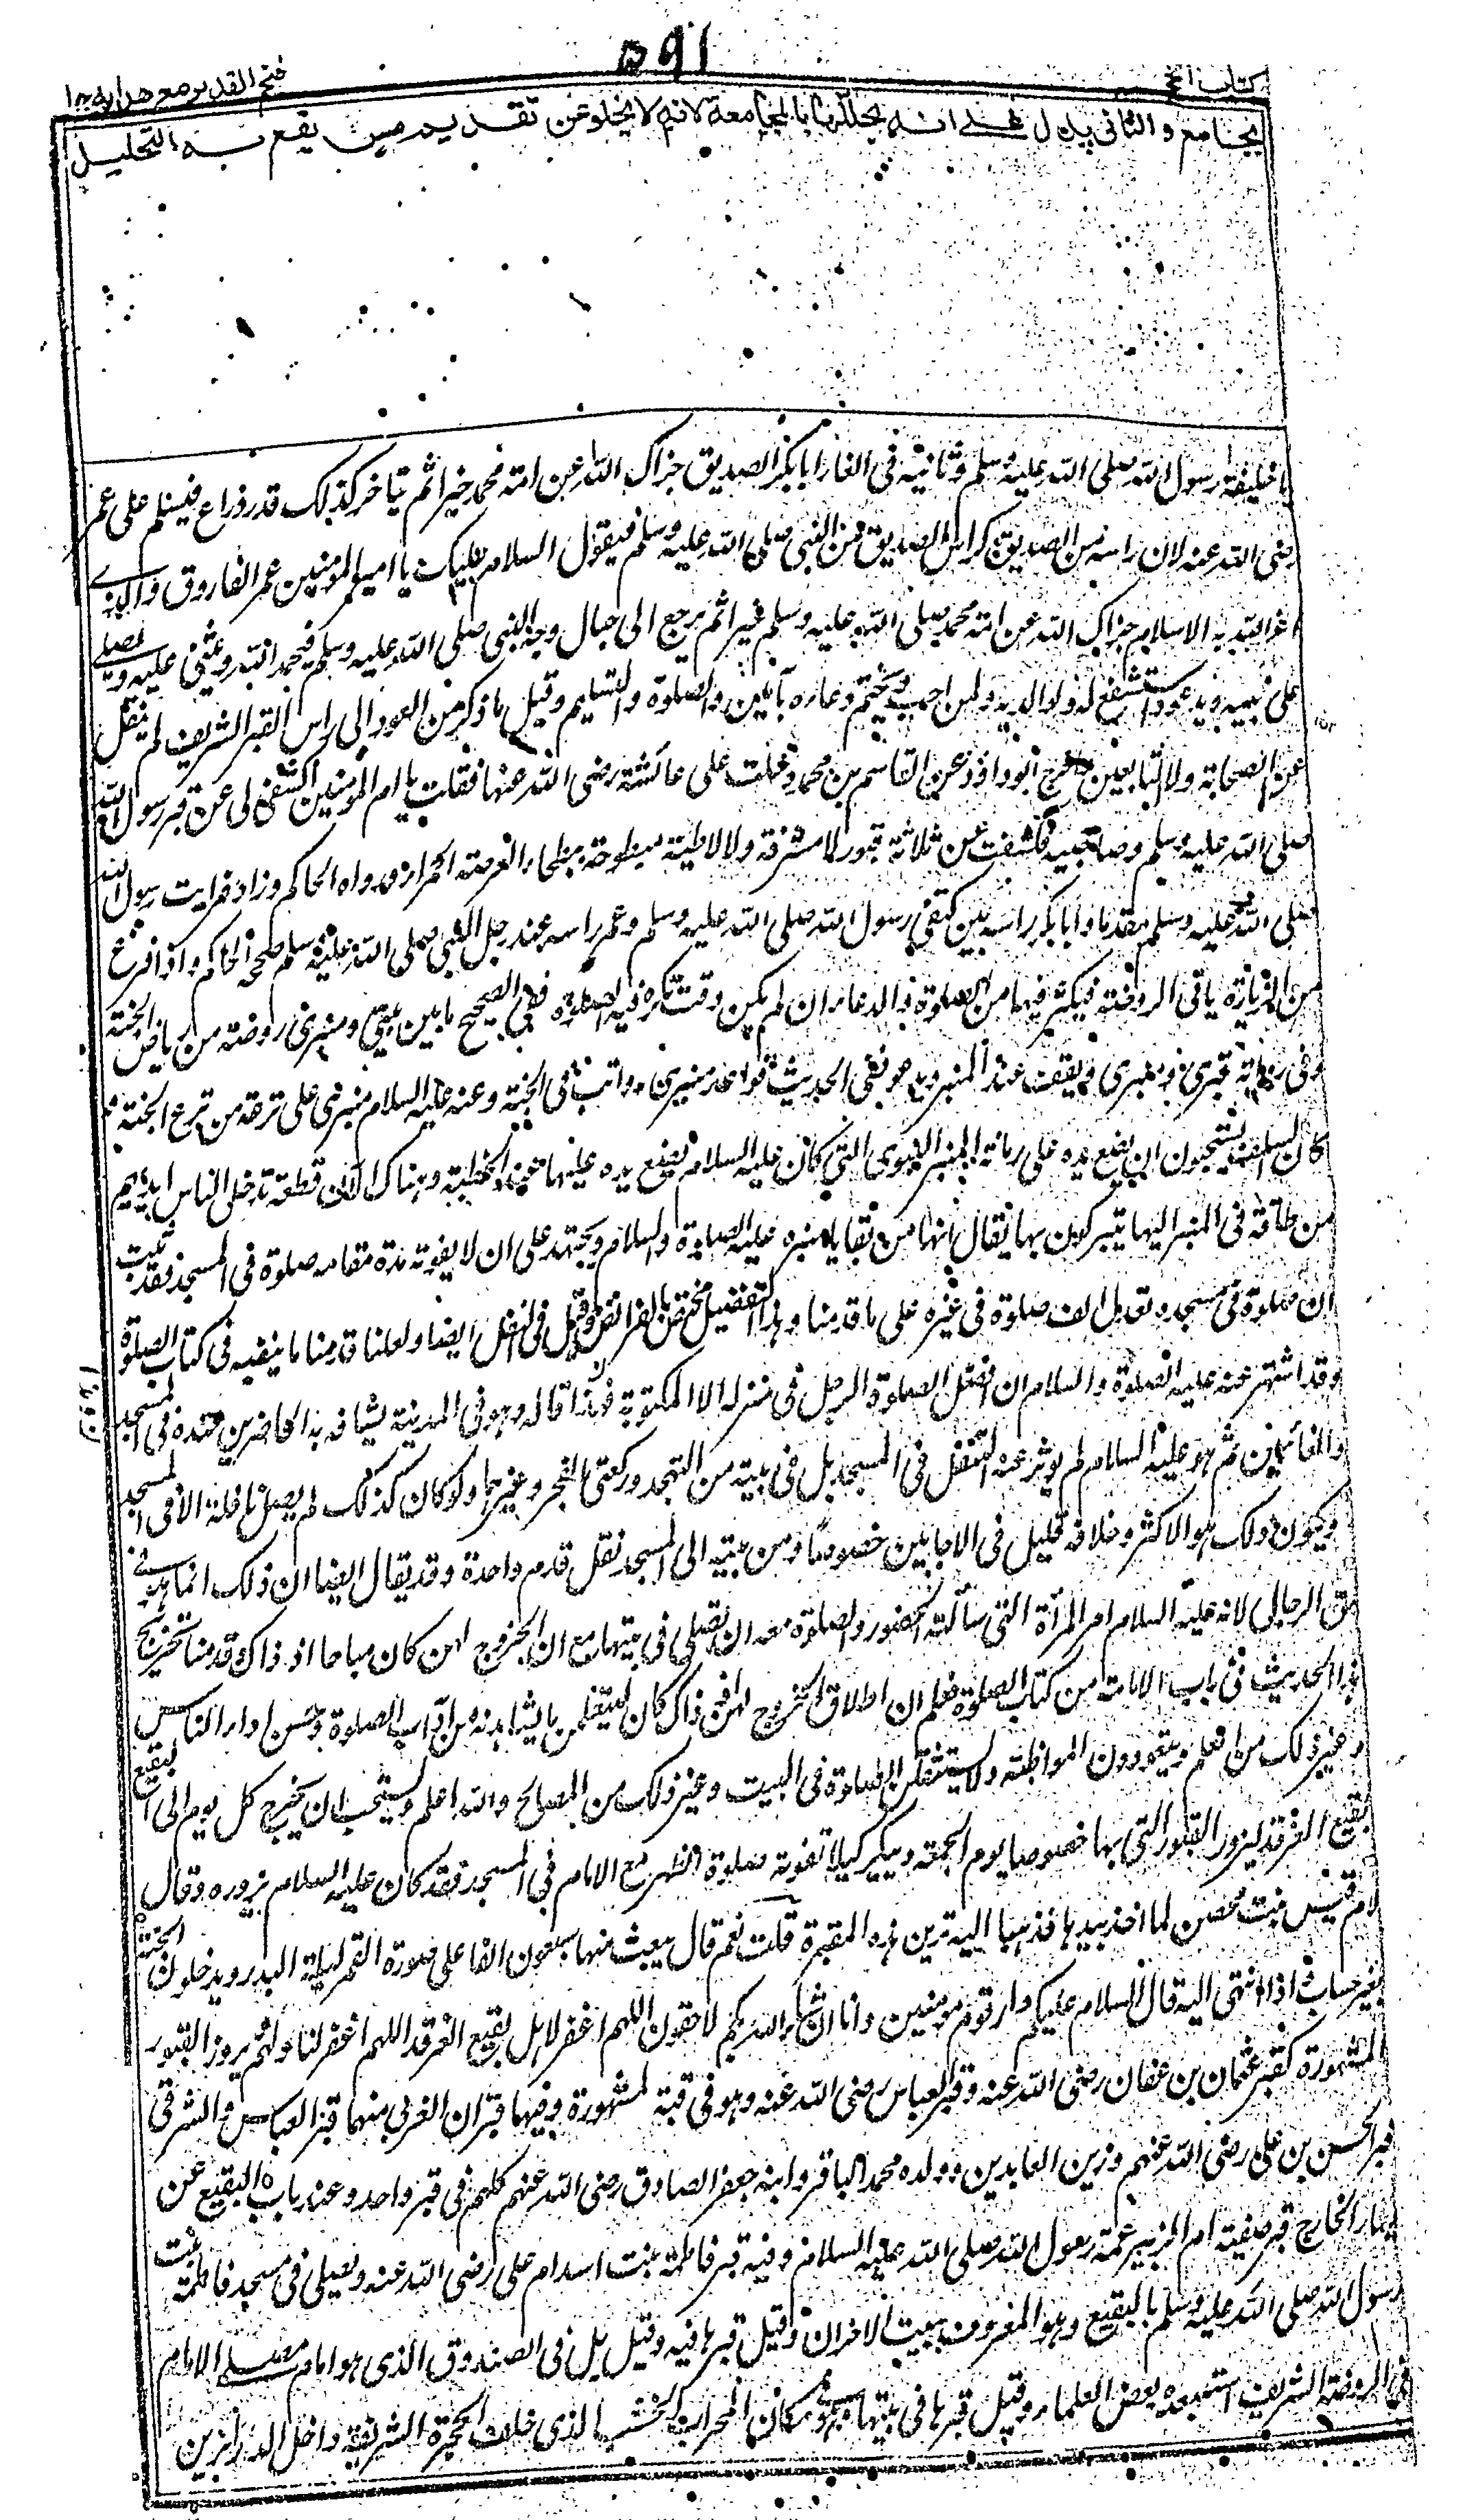 ٥٩١
كتاب الحج
فتح القدير مع هدايه ج ١
يجامع والثانى يدل على انه يحللها بالمجامعة لانه لا يخلو عن تقديم مس يقع به التحليل
يا خليفة رسول الله صلى الله عليه وسلم وثانيه فى الغار ابا بكر الصديق جزاك الله عن امة محمد خيرا ثم يتاخر كذلك قدر ذراع فيسلم على عمر
رضى الله عنه لان راسه من الصديق كراس الصديق من النبى صلى الله عليه وسلم فيقول السلام عليك يا امير المومنين عمر الفاروق الذى
اعز الله به الاسلام جزاك الله عن امة محمد صلى الله عليه وسلم خيرا ثم يرجع الى حيال وجه النبى صلى الله عليه وسلم فيحمد الله ويثنى عليه ويصلى
على نبيه ويدعو ويستشفع له ولوالديه ولمن احب ويختم دعاءه بآمين والصلوة والتسليم وقيل ما ذكر من العود الى راس القبر الشريف لم ينقل
عن الصحابة ولا التابعين اخرج ابو داؤد عن القاسم بن محمد دخلت على عائشة رضى الله عنها فقلت يا ام المومنين اكشفى لى عن قبر رسول الله
صلى الله عليه وسلم وصاحبيه فكشفت عن ثلاثة قبور لا مشرفة ولا لاطية مبطوحة ببطحاء العرصة الحمراء ورواه الحاكم وزاد فرايت رسول الله
صلى الله عليه وسلم مقدما وابا بكر راسه بين كتفى رسول الله صلى الله عليه وسلم وعمر راسه عند رجل النبى صلى الله عليه وسلم صححه الحاكم واذا فرغ
من الزيارة ياتى الروضة فيكثر فيها من الصلوة والدعاء ان لم يكن وقت تكره فيه الصلوة ففى الصحيح ما بين بيتى ومنبرى روضة من رياض الجنة
وفى رواية قبرى ومنبرى ويقف عند المنبر ويدعو ففى الحديث قواعد منبرى رواتب فى الجنة وعنه عليه السلام منبرى على ترعة من ترع الجنة
كان السلف يستحبون ان يضع يده على رمانة المنبر النبوى التى كان عليه السلام يضع يده عليها عند الخطبة وهناك الآن قطعة تدخل الناس ايديهم
من طاقة فى المنبر اليها يتبركون بها يقال انها من بقايا منبره عليه الصلوة والسلام ويجتهد على ان لا يفوته مدة مقامه صلوة فى المسجد فقد ثبت
ان صلوة فى مسجده تعدل الف صلوة فى غيره على ما قدمنا وهذا التفضيل مختص بالفرائض وقيل فى النفل ايضا ولعلنا قدمنا ما ينفيه فى كتاب الصلوة
وقد اشتهر عنه عليه الصلوة والسلام ان افضل الصلوة الرجل فى منزله الا المكتوبة فهذا قاله وهو فى المدينة يشافه به الحاضرين عنده فى المسجد
والغائبين ثم هو عليه السلام لم يوثر عنه التنفل فى المسجد بل فى بيته من التهجد وركعتى الفجر وغيرهما ولو كان كذلك لم يصل نافلة الا فى المسجد
ويكون ذلك هو الاكثر وخلافه قليل فى الاحايين خصوصا ومن بيته الى المسجد نقل قدم واحدة وقد يقال ايضا ان ذلك انما هو فى
حق الرجال لانه عليه السلام امر المرأة التى سألته الحضور والصلوة معه ان تصلى فى بيتها مع ان الخروج لهن كان مباحا اذ ذاك وقد قدمنا تخريج
هذا الحديث فى باب الامامة من كتاب الصلوة فعلم ان اطلاق الخروج لهن اذ ذاك كان ليتعلمن ما يشاهدنه من آداب الصلوة وحسن اداء الناس
وغير ذلك من العلم ويتعودون المواظبة ولا يستثقلن الصلوة فى البيت وغير ذلك من المصالح والله اعلم ويستحب ان يخرج كل يوم الى البقيع
بقيع الغرقد ليزور القبور التى بها خصوصا يوم الجمعة ويبكر كيلا تفوته صلوة الظهر مع الامام فى المسجد فقد كان عليه السلام يزوره وقال
لام قيس بنت محصن لما اخذ بيدها فذهبا اليه ترين هذه المقبرة قلت نعم قال يبعث منها سبعون الفا على صورة القمر ليلة البدر ويدخلون الجنة
بغير حساب اذا انتهى اليه قال السلام عليكم دار قوم مومنين وانا ان شاء الله بكم لاحقون اللهم اغفر لاهل بقيع الغرقد اللهم اغفر لنا ولهم يزور القبور
المشهورة كقبر عثمان بن عفان رضى الله عنه وقبر العباس رضى الله عنه وهو فى قبة المشهورة وفيها قبران الغربى منهما قبر العباس والشرقى
قبر الحسن بن على رضى الله عنهم وزين العابدين وولده محمد الباقر وابنه جعفر الصادق رضى الله عنهم كلهم فى قبر واحد وعند باب البقيع عن
يسار الخارج قبر صفية ام الزبير عمة رسول الله صلى الله عليه السلام وفيه قبر فاطمة بنت اسد ام على رضى الله عنه ويصلى فى مسجد فاطمة بنت
رسول الله صلى الله عليه وسلم بالبقيع وهو المعروف ببيت الاحزان وقيل قبرها فيه وقيل بل فى الصندوق الذى هو امام مصلى الامام
فى الروضة الشريفة استبعده بعض العلماء وقيل قبرها فى بيتها وهو مكان المحراب الخشب الذى خلف الحجرة الشريفة داخل الدرابزين